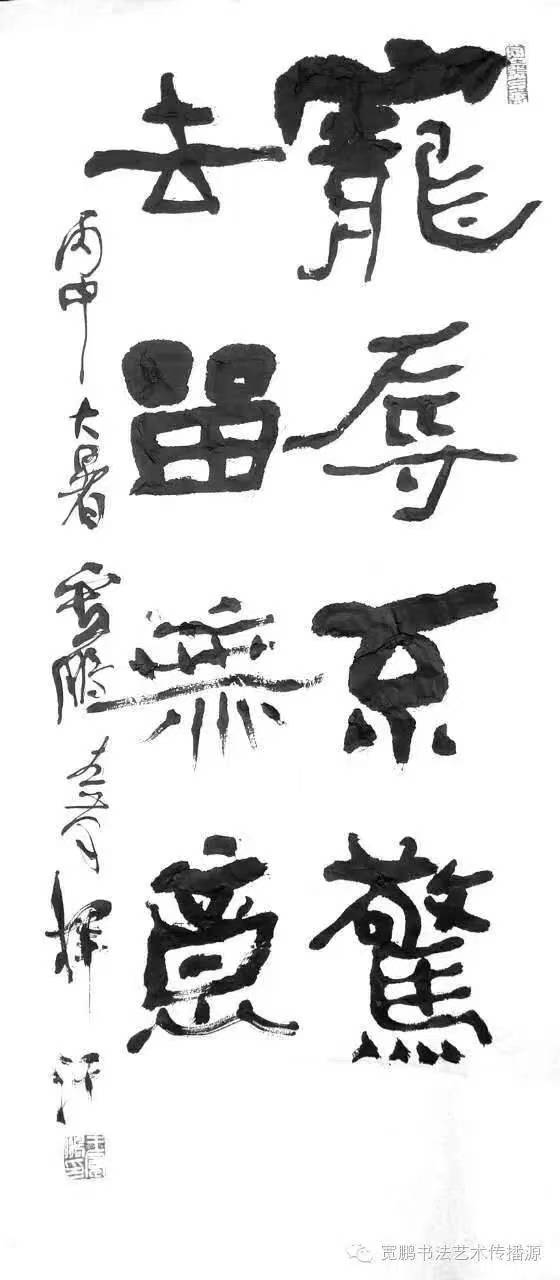 寵辱不驚
去留無意
丙申大暑雪鵬左手揮汗
宽鹏书法艺术传播源